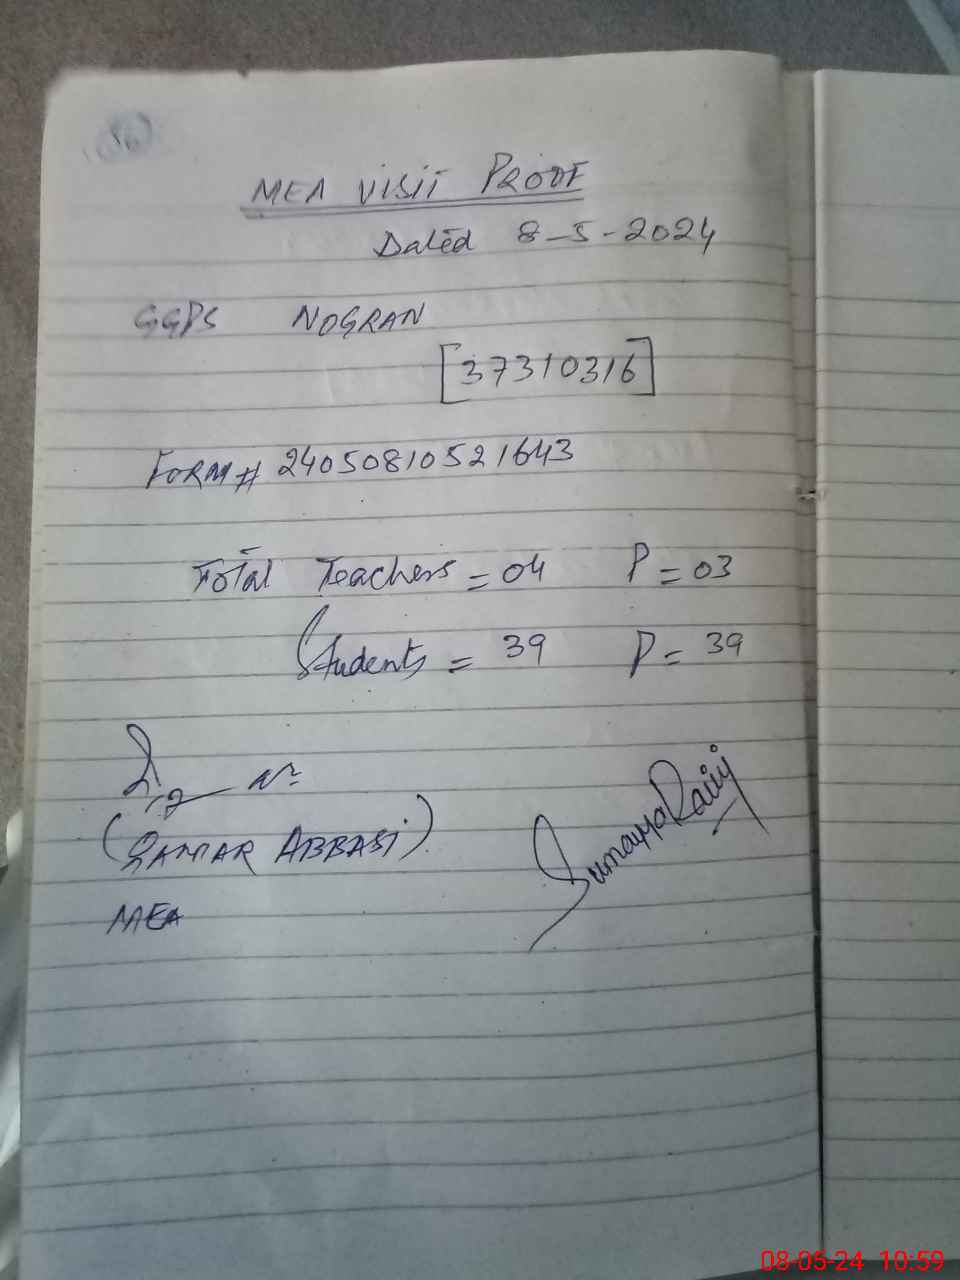 MEA VISIT PROOF
Dated 8-5-2024
GGPS NOGRAN
[37310316]
FORM# 24050810521643
Total Teachers = 04 P = 03
Students = 39 P = 39
(QAMAR ABBASI)
MEA
Sumayra
08-05-24 10:59